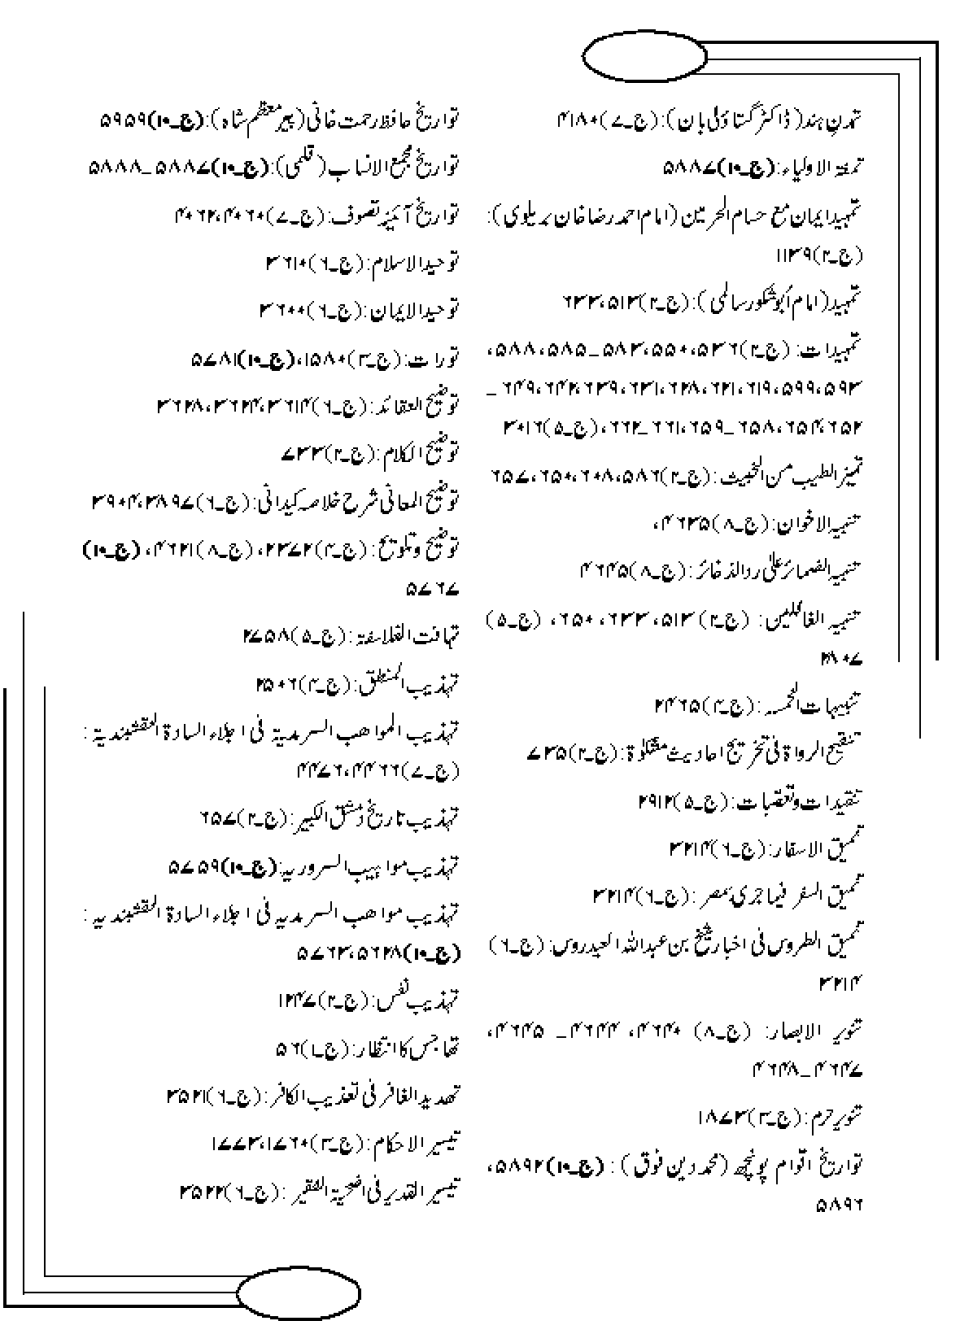 تمدنِ ہند(ڈاکٹر گستاؤلی بان): (ج۔۷)۴۱۸۰
تمتۃ الاولیاء: (ج۔۱۰)۵۸۸۷
تمہیدِ ایمان مع حسام الحرمین (امام احمد رضا خان بریلوی):
(ج۔۲)۱۱۳۹
تمہید(امام اَبوشکور سالمی): (ج۔۲)۵۱۳،۶۳۳
تمہیدات: (ج۔۲)۵۳۶،۵۵۰، ۵۸۳_۵۸۵،۵۸۸،
۵۹۳،۵۹۹،۶۱۹،۶۲۱،۶۲۸،۶۳۱،۶۳۹،۶۴۲،۶۴۹_
۶۵۲،۶۵۴،۶۵۸_۶۵۹،۶۶۱_۶۶۲،(ج۔۵)۳۰۱۶
تمیز الطیب من الخبیث: (ج۔۲)۵۸۶،۶۰۸،۶۵۰،۶۵۷
تنبیہ الاخوان: (ج۔۸)۴۶۳۵،
تنبیہ الضمائر علیٰ ردالذخائر: (ج۔۸)۴۶۴۵
تنبیہ الغافلین: (ج۔۲)۵۱۳، ۶۳۳، ۶۵۰، (ج۔۵)
۲۸۰۷
تنبیہات الخمسہ: (ج۔۴)۲۴۶۵
تنقیح الرواۃ فی تخریج احادیث مشکوٰۃ: (ج۔۲)۷۳۵
تنقیدات و تعقبات: (ج۔۵)۲۹۱۲
تنمیق الاسفار: (ج۔۶)۳۲۱۴
تنمیق السفر فیما جریٰ بمصر: (ج۔۶)۳۲۱۴
تنمیق الطروس فی اخبار شیخ بن عبداللہ العیدروس: (ج۔۶)
۳۲۱۴
تنویر الابصار: (ج۔۸) ۴۶۴۰، ۴۶۴۴_ ۴۶۴۵،
۴۶۴۷_۴۶۴۸
تنویرِ حرم: (ج۔۳)۱۸۷۳
تواریخ اقوام پونچھ (محمد دین فوق): (ج۔۱۰)۵۸۹۲،
۵۸۹۶
تواریخ حافظ رحمت خانی(پیر معظم شاہ): (ج۔۱۰)۵۹۵۹
تواریخ مجمع الانساب (قلمی): (ج۔۱۰)۵۸۸۷_۵۸۸۸
تواریخ آئینہ تصوف: (ج۔۷)۴۰۶۰،۴۰۶۲
توحید الاسلام: (ج۔۶)۳۶۱۰
توحید الایمان: (ج۔۶)۳۶۰۰
تورات: (ج۔۳)۱۵۸۰،(ج۔۱۰)۵۷۸۱
توضیح العقائد: (ج۔۶)۳۶۱۴،۳۶۲۴،۳۶۲۸
توضیح الکلام: (ج۔۲)۷۳۳
توضیح المعانی شرح خلاصہ کیدانی: (ج۔۶)۳۸۹۷،۳۹۰۴
توضیح و تلویح: (ج۔۴)۲۳۷۲، (ج۔۸)۴۶۲۱، (ج۔۱۰)
۵۷۶۷
تہافت الفلاسفۃ: (ج۔۵)۲۷۵۸
تہذیب المنطق: (ج۔۴)۲۵۰۶
تہذیب المواھب السرمدیۃ فی اجلاء السادۃ النقشبندیۃ:
(ج۔۷)۴۴۶۶،۴۴۷۶
تہذیب تاریخ دمشق الکبیر: (ج۔۲)۶۵۷
تہذیب مواہیب السروریہ: (ج۔۱۰)۵۷۵۹
تہذیب مواھب السرمدیہ فی اجلاء السادۃ النقشبندیہ:
(ج۔۱۰)۵۶۲۸،۵۷۶۳
تہذیبِ نفس: (ج۔۲)۱۲۴۷
تھا جس کا انتظار: (ج۔۱)۵۶
تھدید الغافر فی تعذیب الکافر: (ج۔۶)۳۵۲۱
تیسیر الاحکام: (ج۔۳)۱۷۶۰،۱۷۷۳
تیسیر القدیر فی اضحیۃ الفقیر: (ج۔۶)۳۵۲۲